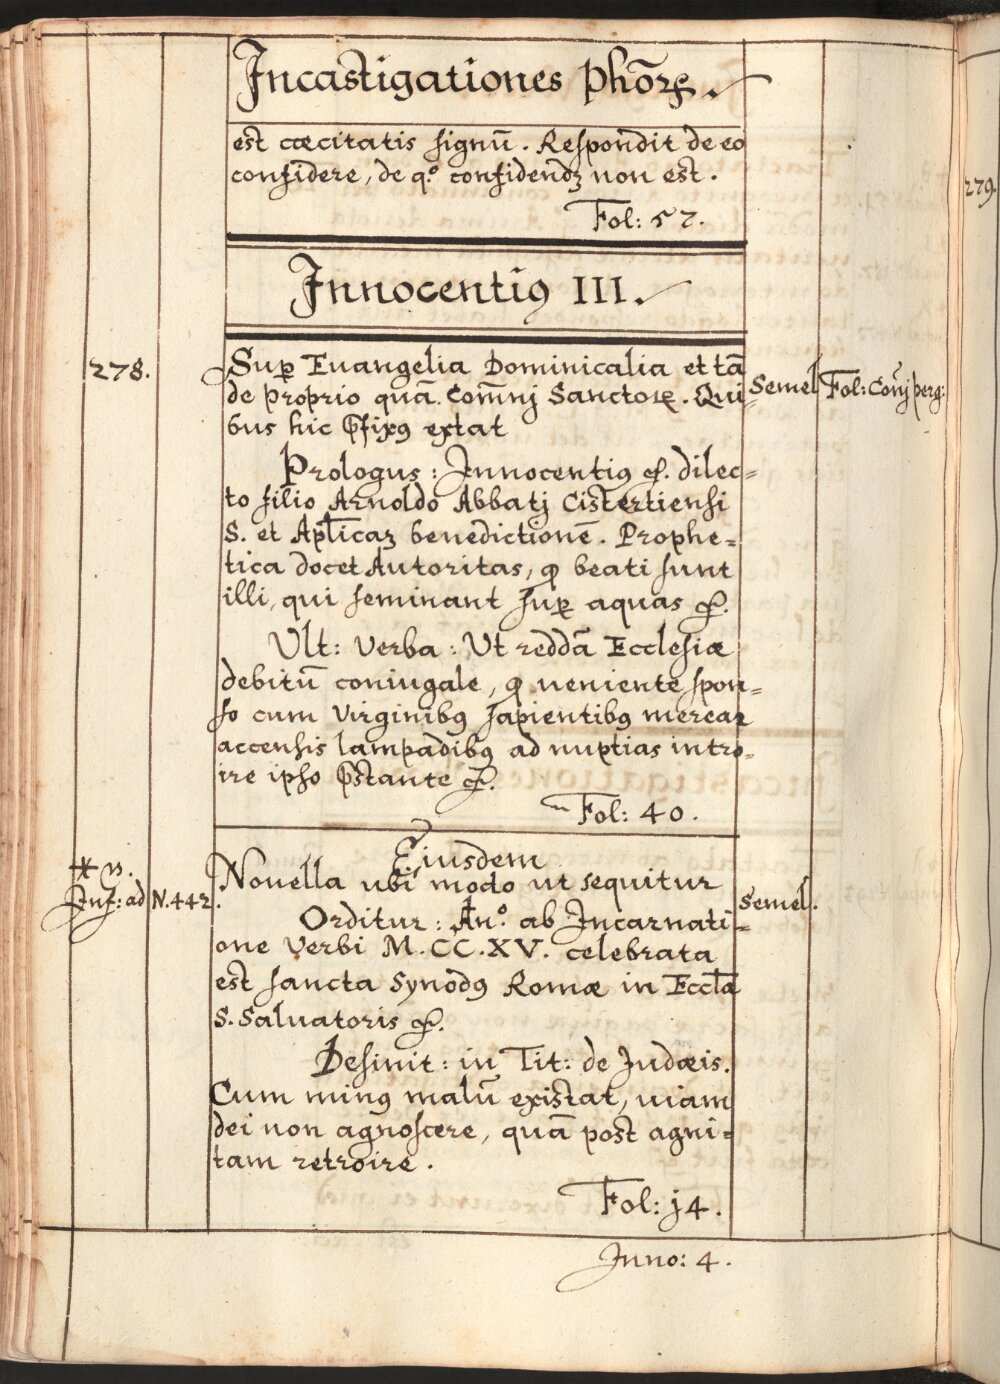 Incastigationes Phōrꝝ.
est cœcitatis signū. Respondit de eo
confidere, de q.º confidendꝫ non est.
Fol: 57.
Innocentiꝰ III.
278.
Suꝑ Euangelia Dominicalia et tā
de proprio quā. Com̄nj Sanctoꝝ. Qui-
bus hic p̄fixꝰ extat
Semel
Fol: Com̄j perg:
Prologus: Innocentiꝰ &. dilec=
to filio Arnoldo Abbatj Cistertiensi
S. et Apl̄icaꝫ benedictionē. Prophe=
tica docet Autoritas, ꝙ beati sunt
illi, qui seminant suꝑ aquas &.
Ult: verba: Ut reddā Ecclesiæ
debitū coniugale, ꝙ ueniente spon=
so cum virginibꝰ sapientibꝰ merear
accensis lampadibꝰ ad nuptias intro-
ire ipso p̄stante &.
Fol: 40.
Eiusdem
* n.
Inf: ad N.442.
Nouella ubi modo ut sequitur
Semel.
Orditur: An.º ab Incarnati-
one Verbi M.CC.XV. celebrata
est sancta Synodꝰ Romæ in Eccl̄a
S. Saluatoris &.
Desinit: in Tit: de Judæis.
Cum minꝰ malū existat, uiam
dei non agnoscere, quā post agni=
tam retroire.
Fol: j4.
Inno: 4.
279.